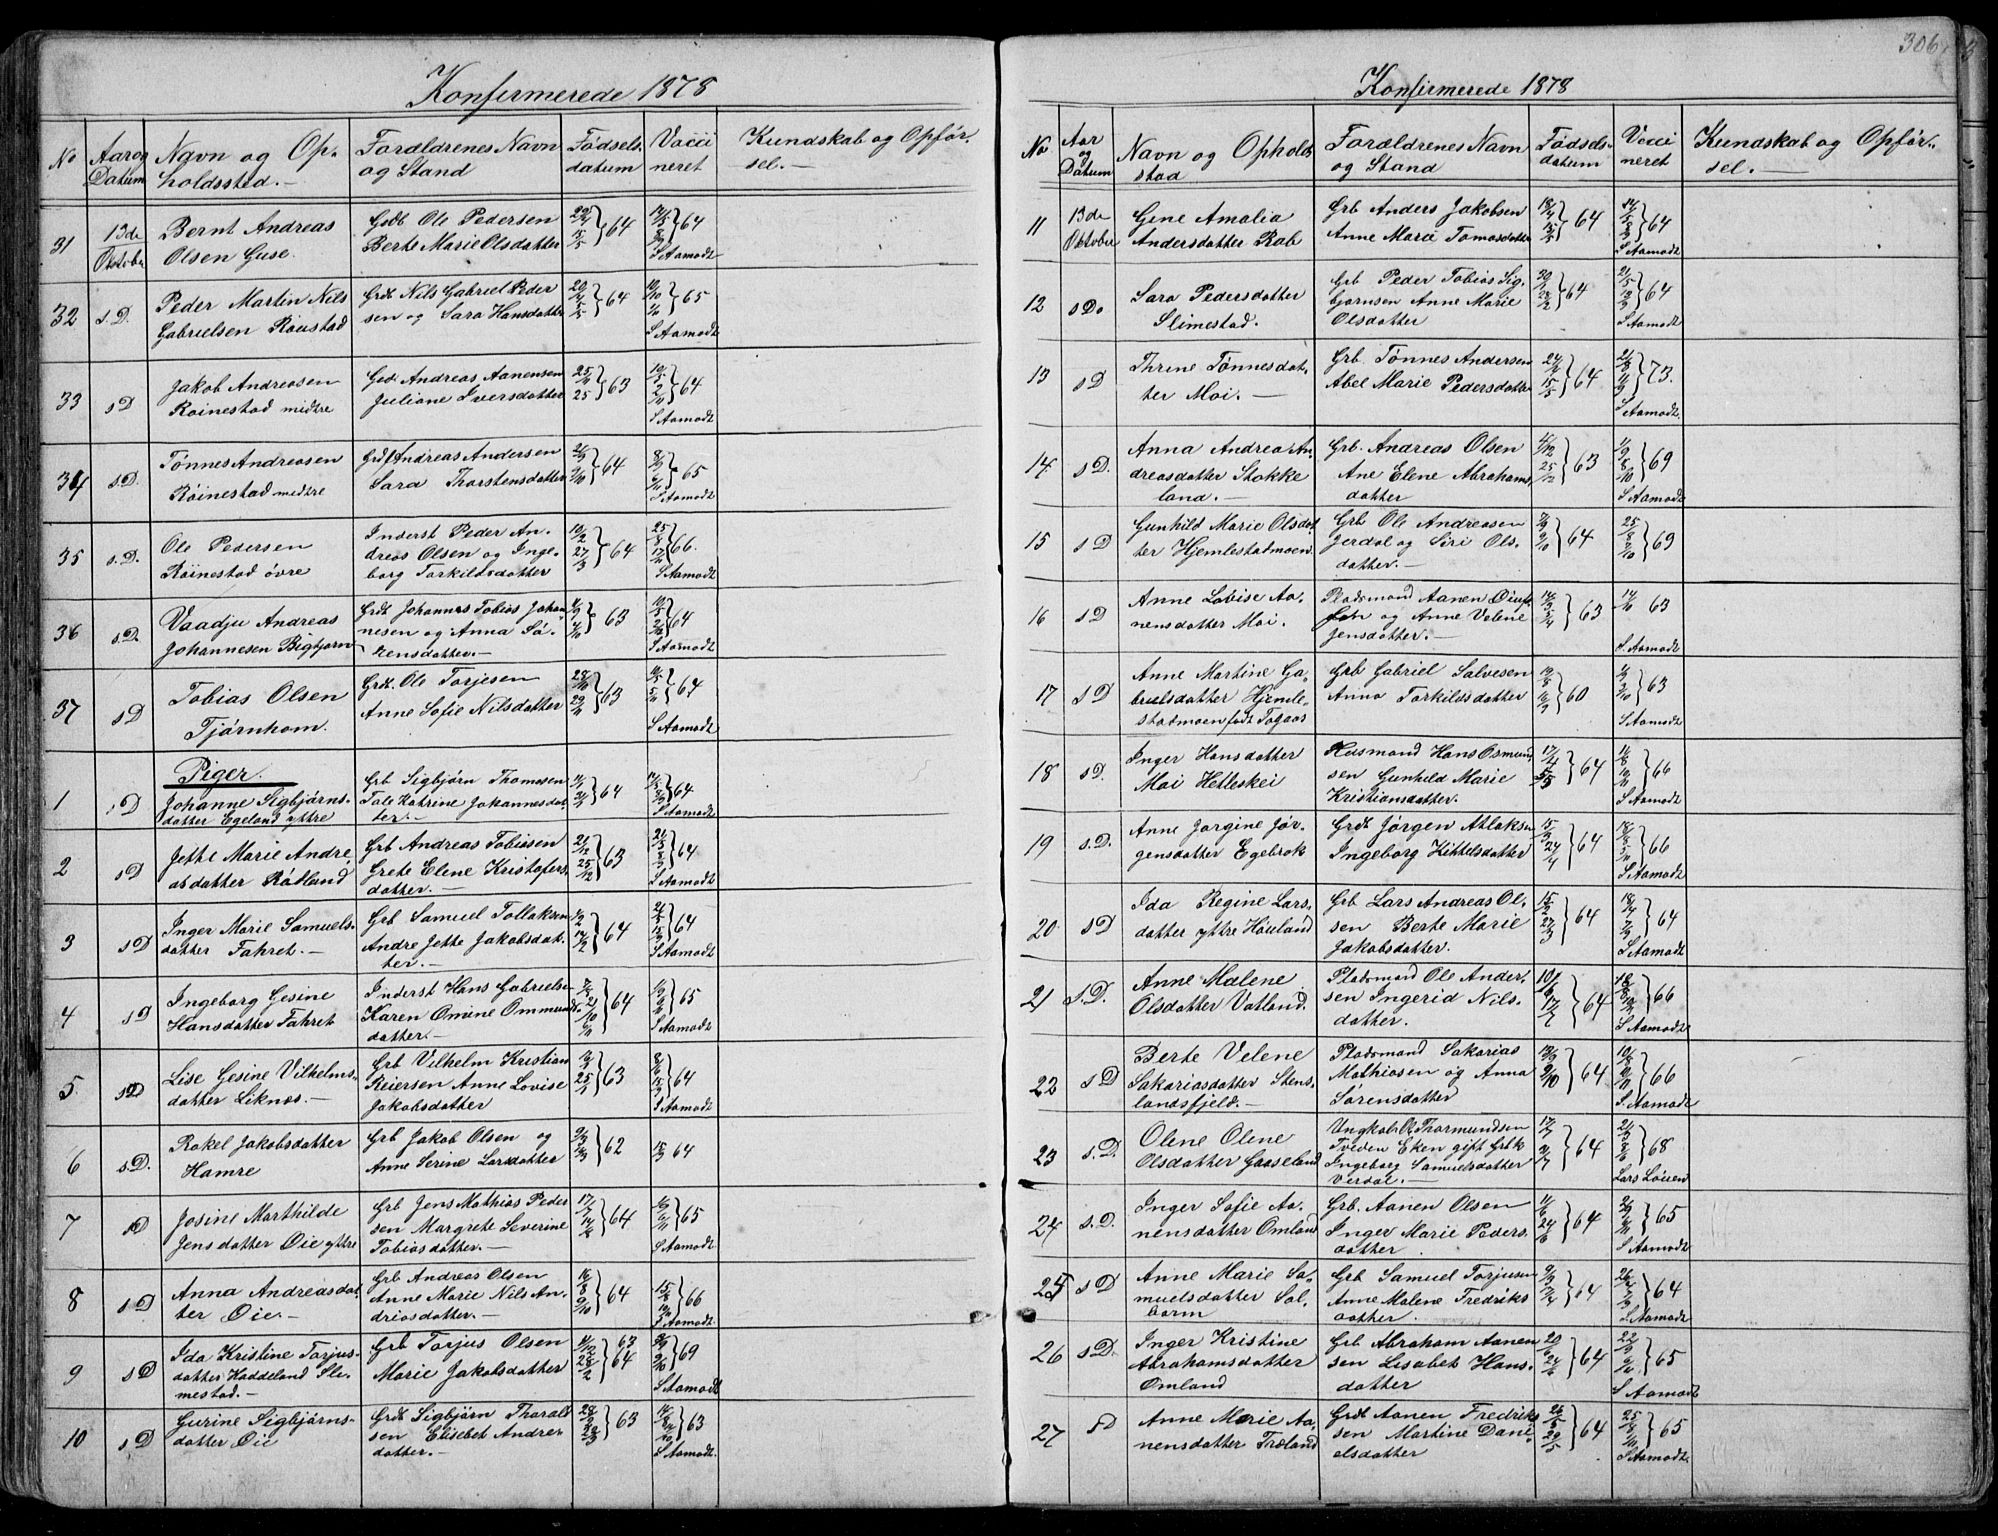 306
Konfirmerede 1878
No
Aar og
Datum
Navn og Op-
holdssted.-
Forældrenes Navn
og Stand
Fødsels-
datum
Vacci
neret
Kundskab og Opfør-
sel.-
31
13de
Oktober
Bernt Andreas
Olsen Guse.
Grdb Ole Pedersen
Berte Marie Olsdatter
64
64
S Aamodt
32
s. D.
Peder Martin Nils
Gabrielsen Röiestad
Grdt Nils Gabriel Peder
sen og Sara Hansdatter
64
65
S Aamodt
33
s D
Jakob Andreasen
Röinestad midtre
Grd Andreas Aanensen
Juliane Iversdatter
63
64
S Aamodt
34
s. D.
Tønnes Andreasen
Röinestad midtre
Andreas Andersen
Sara Thorstensdatter
64
65
S Aamodt
35
s. D.
Ole Pedersen
Röinestad övre
Inderst Peder An-
dreas Olsen og Inge-
borg Torkildsdatter
64
66.
S Aamodt
36
s. D.
Vaadju Andreas
Johannesen Bigbjorn
Grdt Johannes Tobias Johan
nesen og Anna Sö-
rensdatter.-
63
64
S Aamodt
37
s D
Tobias Olsen
Tjørnhom.
Grdt. Ole Torjesen
Anne Sofie Nilsdatter
63
64
S Aamodt
Piger.
1
s D
Johanne Sigbjørns-
datter Egeland yttre
Grb Sigbjørn Thomesen
Tale Katrine Johannesdat-
ter.-
64
64
S Aamodt
2
s D
Jette Marie Andre
asdatter Rötland
Grb Andreas Tobiasen
Grete Elene Kristofers
datter.-
63
64
S Aamodt
3
s D
Inger Marie Samuels-
datter Fahret.-
Grb Samuel Tollaksen
Andre Jette Jakobsdat-
ter.-
64
64
S Aamodt
4
s D
Ingeborg Gesine
Hansdatter Fahret
Inderst Hans Gabrielse
Karen Omine Ommunds
datter.-
64
65
S Aamodt
5
s D
Lise Gesine Vilhelms-
datter Liknes.-
Grb Vilhelm Kristian
Reiersen Anne Lovise
Jakobsdatter
63
64
S Aamodt
6
s. D.
Rakel Jakobsdatter
Hamre
Grb Jakob Olsen og
Anne Serine Larsdatter
62
64
7
s D
Josine Marthilde
Jensdatter Oie yttre
Grb Jens Mathias Peder
sen Margrete Severine
Tobiasdatter.-
64
65
S Aamodt
8
s D
Anna Andreasdat
ter Oie.-
Grb Andreas Olsen
Anne Marie Nils An-
driasdatter.-
64
66
S Aamodt
9
s D
Ida Kristine Torjus-
datter Haddeland Sli-
mestad.-
Grb Torjus Olsen
Marie Jakobsdatter
63
64
69
S Aamodt
10
s D
Gurine Sigbjørns-
datter Oie
Grdt Sigbjørn Thorals
sen Elisebet Andre-
datter.-
63
63
S Aamodt
Konfirmerede 1878
No
Aar
og
Datum
Navn og Opholds
stad
Forældrenes Navn
og Stand
Fødsels-
datum
Vacci
neret
Kundskab og Opfør-
sel.-
11
13de
Oktober
Gine Amalia
Andersdatter Rob
Grb Anders Jakobsen
Anne Marie Tomasdatter
64
64
S Aamodt
12
s Do
Sara Pedersdatter
Slimestad.
Grb Peder Tobias Sig-
bjørnsen Anne Marie
Olsdatter
64
64
S Aamodt
13
s D
Thrine Tønnesdat-
ter Moi.-
Grb. Tønnes Andersen
Abel Marie Pedersdatter
64
73.
S Aamodt.
14
s D.
Anna Andrea An-
dreasdatter Stokke
land.-
Grb. Andreas Olsen
Ane Elene Abrahams
datter
63
69
S Aamodt
15
s D
Gunhild Marie Olsdat
ter Hjemlestadmoen
Grb Ole Andreasen
Jerdal og Siri Ols-
datter.-
64
69
16
s D
Anne Lovise Aa-
nensdatter Moi.
Pladsmand Aanen
og Anne Velene
Jensdatter.-
63
63
S. Aamodt
17
s D
Anne Martine Ga-
brielsdatter Hjemle-
stadmoen født Togaas
Grb Gabriel Salvesen
Anna Torkildsdatter
60
63
S Aamodt
18
s D.
Inger Hansdatter
Moi Helleskei
Husmand Hans Osmund
sen Gunhild Marie
Kristiansdatter.
64
66
S Aamodt
19
s. D.
Anne Jorgine Jør-
gensdatter Egebrok
Grdt Jørgen Atlaksen
Ingeborg Kittelsdatter
64
66
S Aamodt
20
s D
Ida Regine Lars-
datter yttre Houland
Grb Lars Andreas Ol-
sen Berte Marie
Jakobsdatter.
64
64
S Aamodt
21
s. D.
Anne Malene
Olsdatter Vatland.
Pladsmand Ole Ander-
sen Ingerid Nils-
datter.
64
66
S Aamodt
22
s D
Berte Velene
Sakariasdatter Stens-
landsfjeld.-
Pladsmand Sakarias
Mathiasen og Anna
Sørensdatter
64
66
S. Aamodt
23
s. D.
Olene Olene
Olsdatter Gaaseland
Ungkarl Ol Thormundsen
Tveden Eken gift Grbk
Ingeborg Samuelsdatter
Verdal.-
64
68
Lars Löien
24
s. D.
Inger Sofie Aa-
nensdatter Omland
Grb. Aanen Olsen
Inger Marie Peders-
datter
64
65
S Aamodt
25
s D
Anne Marie Sa-
muelsdatter Sol-
Grb Samuel Torjusen
Anne Malene Fredriks
datter.
64
64
S Aamodt
26
s D.
Inger Kristine
Abrahamsdatter
Omland
Grb Abraham Aanen
sen Lisabet Hans-
datter
64
65
S Aamodt
27
s D
Anne Marie Aa-
nensdatter Træland
Grdt Aanen Fredriks
sen Martine Dani-
elsdatter
64
65
S Aamodt.